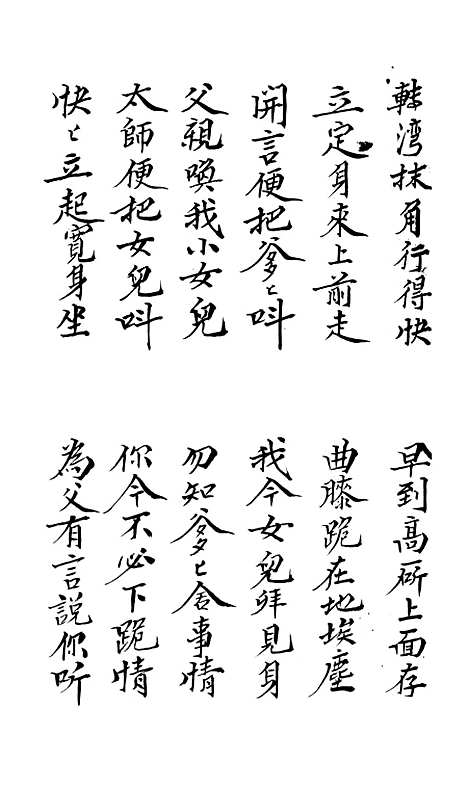 轉湾抹角行得快
早到高所上面存
立定身來上前走
曲膝跪在地埃塵
開言便把爹〻呌
我今女兒拜見身
父親喚我小女兒
勿知爹〻舍事情
太師便把女兒呌
你今不必下跪情
快〻立起寬身坐
為父有言說你听